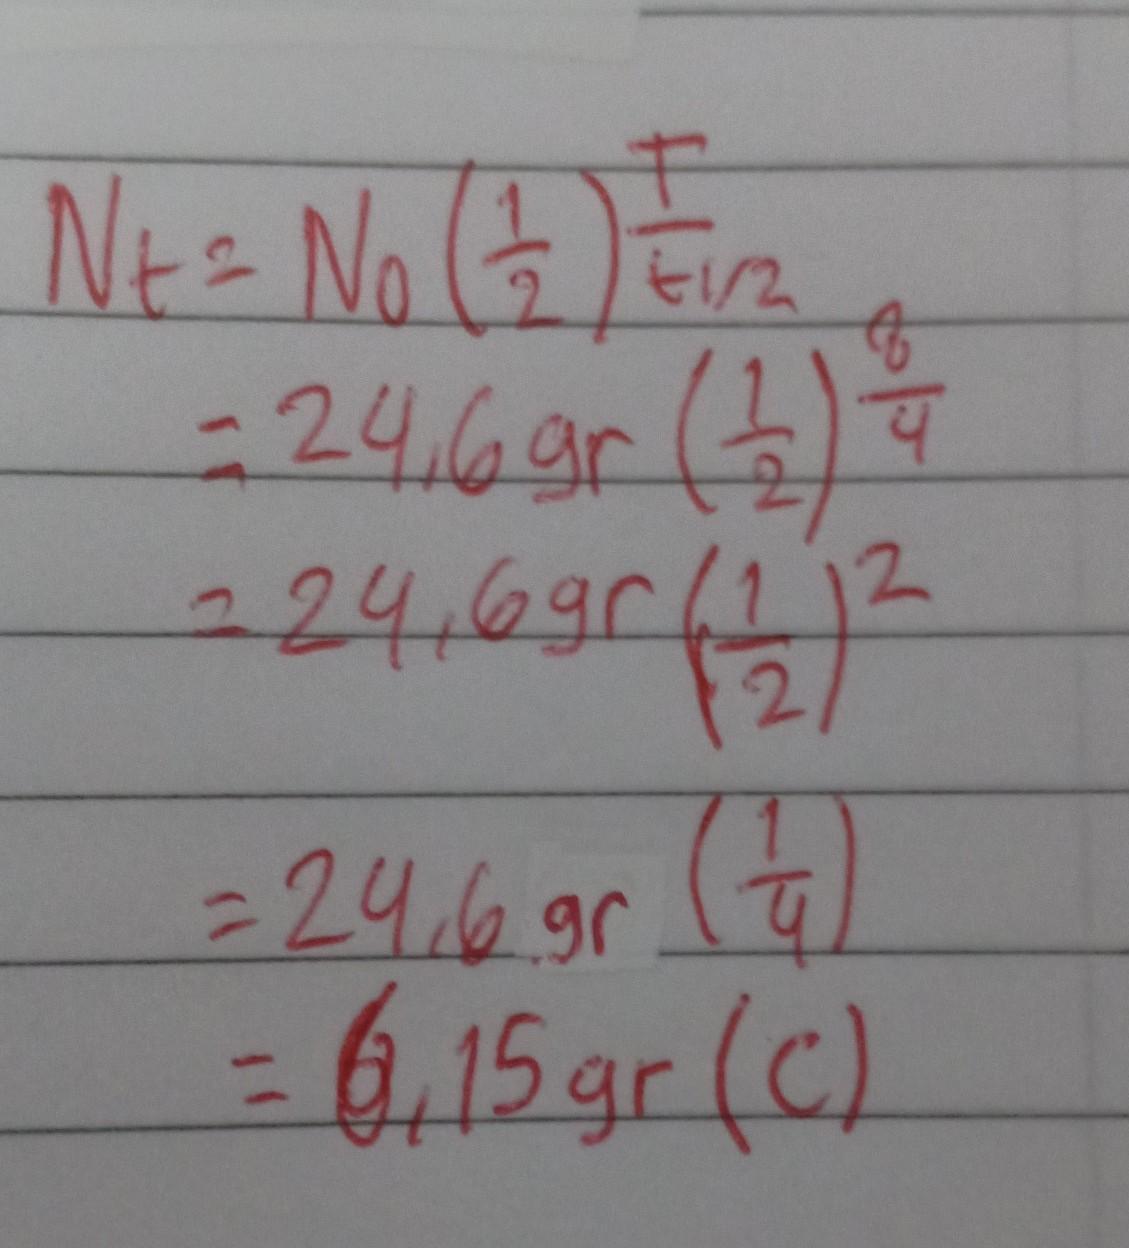 Nt = No (1/2)^T/t1/2
= 24,6 gr (1/2)^8/4
= 24,6 gr (1/2)^2
= 24,6 gr (1/4)
= 6,15 gr (C)